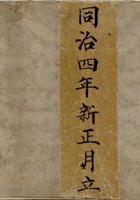 同治四年新正月立